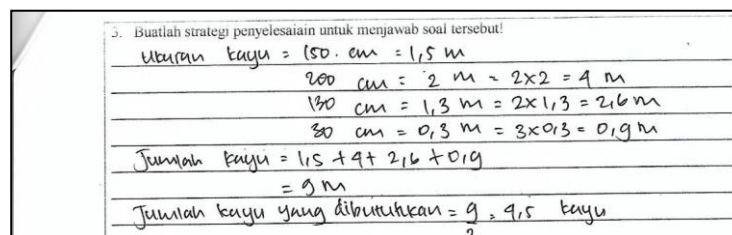 3. Buatlah strategi penyelesaiain untuk menjawab soal tersebut!
Ukuran kayu = 150 . cm = 1,5 m
200 cm = 2 m = 2x2 = 4 m
130 cm = 1,3 m = 2x1,3 = 2,6 m
30 cm = 0,3 m = 3x0,3 = 0,9 m
Jumlah kayu = 1,5 + 4 + 2,6 + 0,9
= 9 m
Jumlah kayu yang dibutuhkan = 9/2 = 4,5 kayu